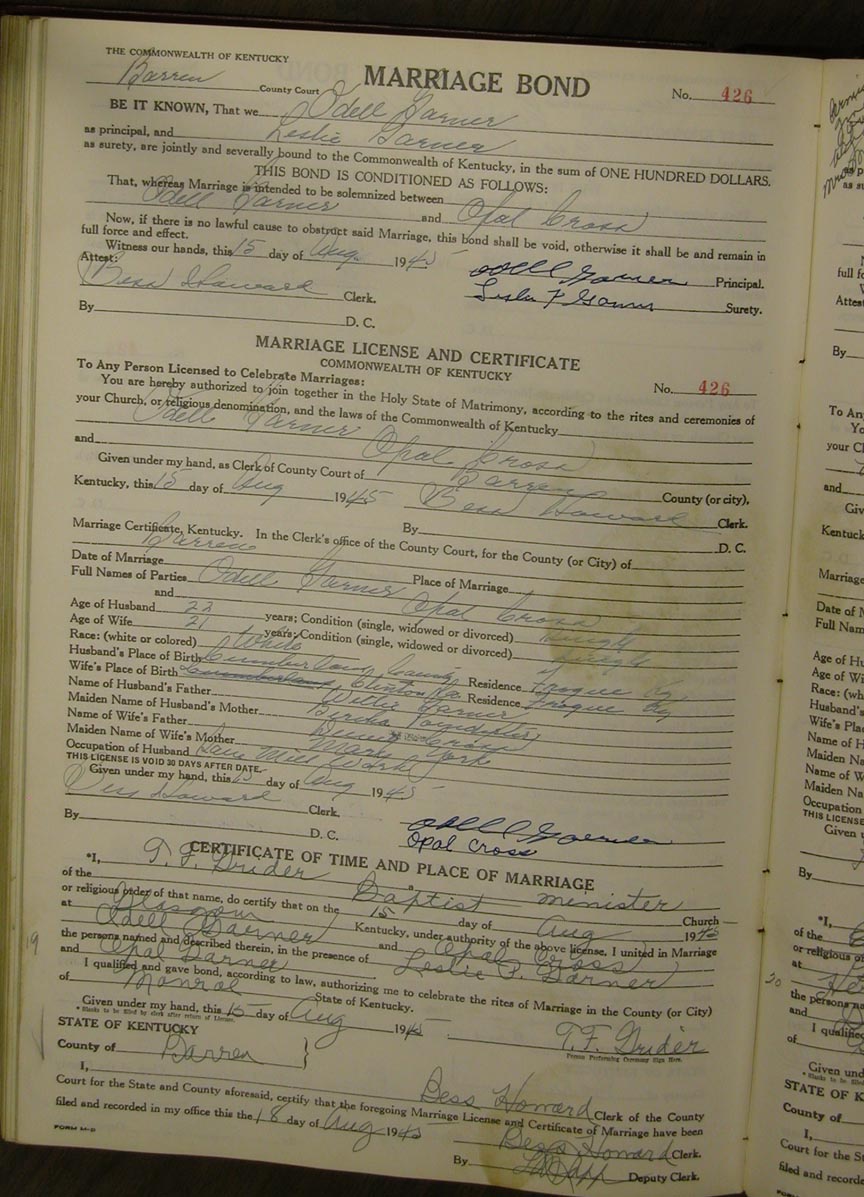 THE COMMONWEALTH OF KENTUCKY
MARRIAGE BOND
Barren County Court
No. 426
BE IT KNOWN, That we Odell Garner
as principal, and Leslie Garner
as surety, are jointly and severally bound to the Commonwealth of Kentucky, in the sum of ONE HUNDRED DOLLARS.
THIS BOND IS CONDITIONED AS FOLLOWS:
That, whereas Marriage is intended to be solemnized between
Odell Garner and Opal Cross
Now, if there is no lawful cause to obstruct said Marriage, this bond shall be void, otherwise it shall be and remain in
full force and effect.
Witness our hands, this 15 day of Aug. 1945
Attest:
Odell Garner Principal.
Bess Howard Clerk.
Leslie P Garner Surety.
By D. C.
MARRIAGE LICENSE AND CERTIFICATE
COMMONWEALTH OF KENTUCKY
To Any Person Licensed to Celebrate Marriages:
No. 426
You are hereby authorized to join together in the Holy State of Matrimony, according to the rites and ceremonies of
your Church, or religious denomination, and the laws of the Commonwealth of Kentucky
Odell Garner
and Opal Cross
Given under my hand, as Clerk of County Court of Barren County (or city),
Kentucky, this 15 day of Aug 1945 Bess Howard Clerk.
By D. C.
Marriage Certificate, Kentucky. In the Clerk's office of the County Court, for the County (or City) of
Barren
Date of Marriage Place of Marriage
Full Names of Parties Odell Garner
and Opal Cross
Age of Husband 22 years; Condition (single, widowed or divorced) Single
Age of Wife 21 years; Condition (single, widowed or divorced) Single
Race: (white or colored) White
Husband's Place of Birth Cumberland County Residence Frogue Ky
Wife's Place of Birth Cumberland Clinton Co. Residence Frogue Ky
Name of Husband's Father Willie Garner
Maiden Name of Husband's Mother Bertha Poindexter
Name of Wife's Father Cross
Maiden Name of Wife's Mother Mary York
Occupation of Husband Saw Mill Work
THIS LICENSE IS VOID 30 DAYS AFTER DATE.
Given under my hand, this 15 day of Aug 1945
Bess Howard Clerk.
Odell Garner
By D. C.
Opal Cross
CERTIFICATE OF TIME AND PLACE OF MARRIAGE
*I, T. F. Grider a
of the Baptist minister Church
or religious order of that name, do certify that on the 15 day of Aug 1945
at Glasgow Kentucky, under authority of the above license, I united in Marriage
Odell Garner and Opal Cross
the persons named and described therein, in the presence of Leslie P. Garner
and Opal Garner
I qualified and gave bond, according to law, authorizing me to celebrate the rites of Marriage in the County (or City)
of Monroe State of Kentucky.
Given under my hand, this 15 day of Aug 1945
T. F. Grider
* Blanks to be filled by clerk after return of License.
Person Performing Ceremony Sign Here.
STATE OF KENTUCKY
County of Barren }
I, Bess Howard Clerk of the County
Court for the State and County aforesaid, certify that the foregoing Marriage License and Certificate of Marriage have been
filed and recorded in my office this the 18 day of Aug 1945
Bess Howard Clerk.
By Deputy Clerk.
FORM M-D